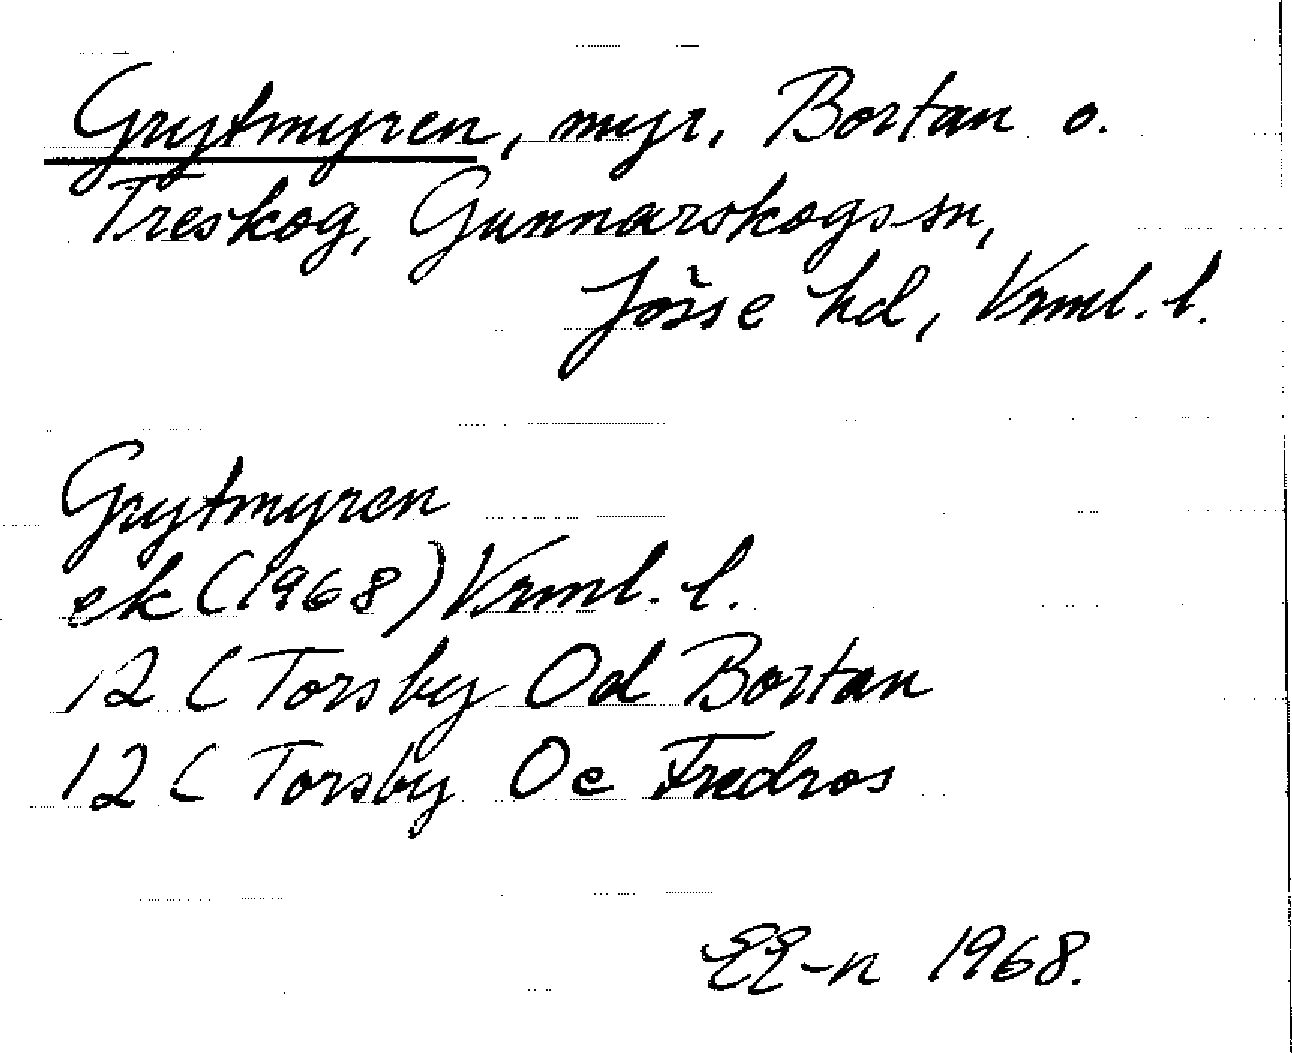 Grytmyren, myr, Bortan o.
Treskog, Gunnarskogs sn,
Jösse hd, Vrml. l.
Grytmyren
ek (1968) Vrml. l.
12 C Torsby Od Bortan
12 C Torsby Oe Fredros
EE-n 1968.